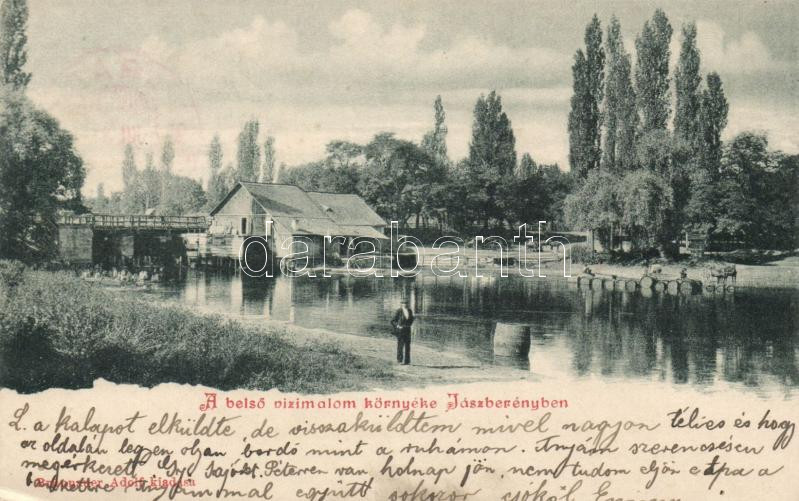 darabanth
A belső vizimalom környéke Jászberényben
L. a kalapot elküldte, de visszaküldtem mivel nagyon télies és hogy
az oldalán legyen olyan bordó mint a ruhámon. Anyám szerencsésen
megérkezett Sajósz. Péterren van holnap jön, nem tudom eljön e a
Brünauer Adolf kiadása
együtt sokszor csókol